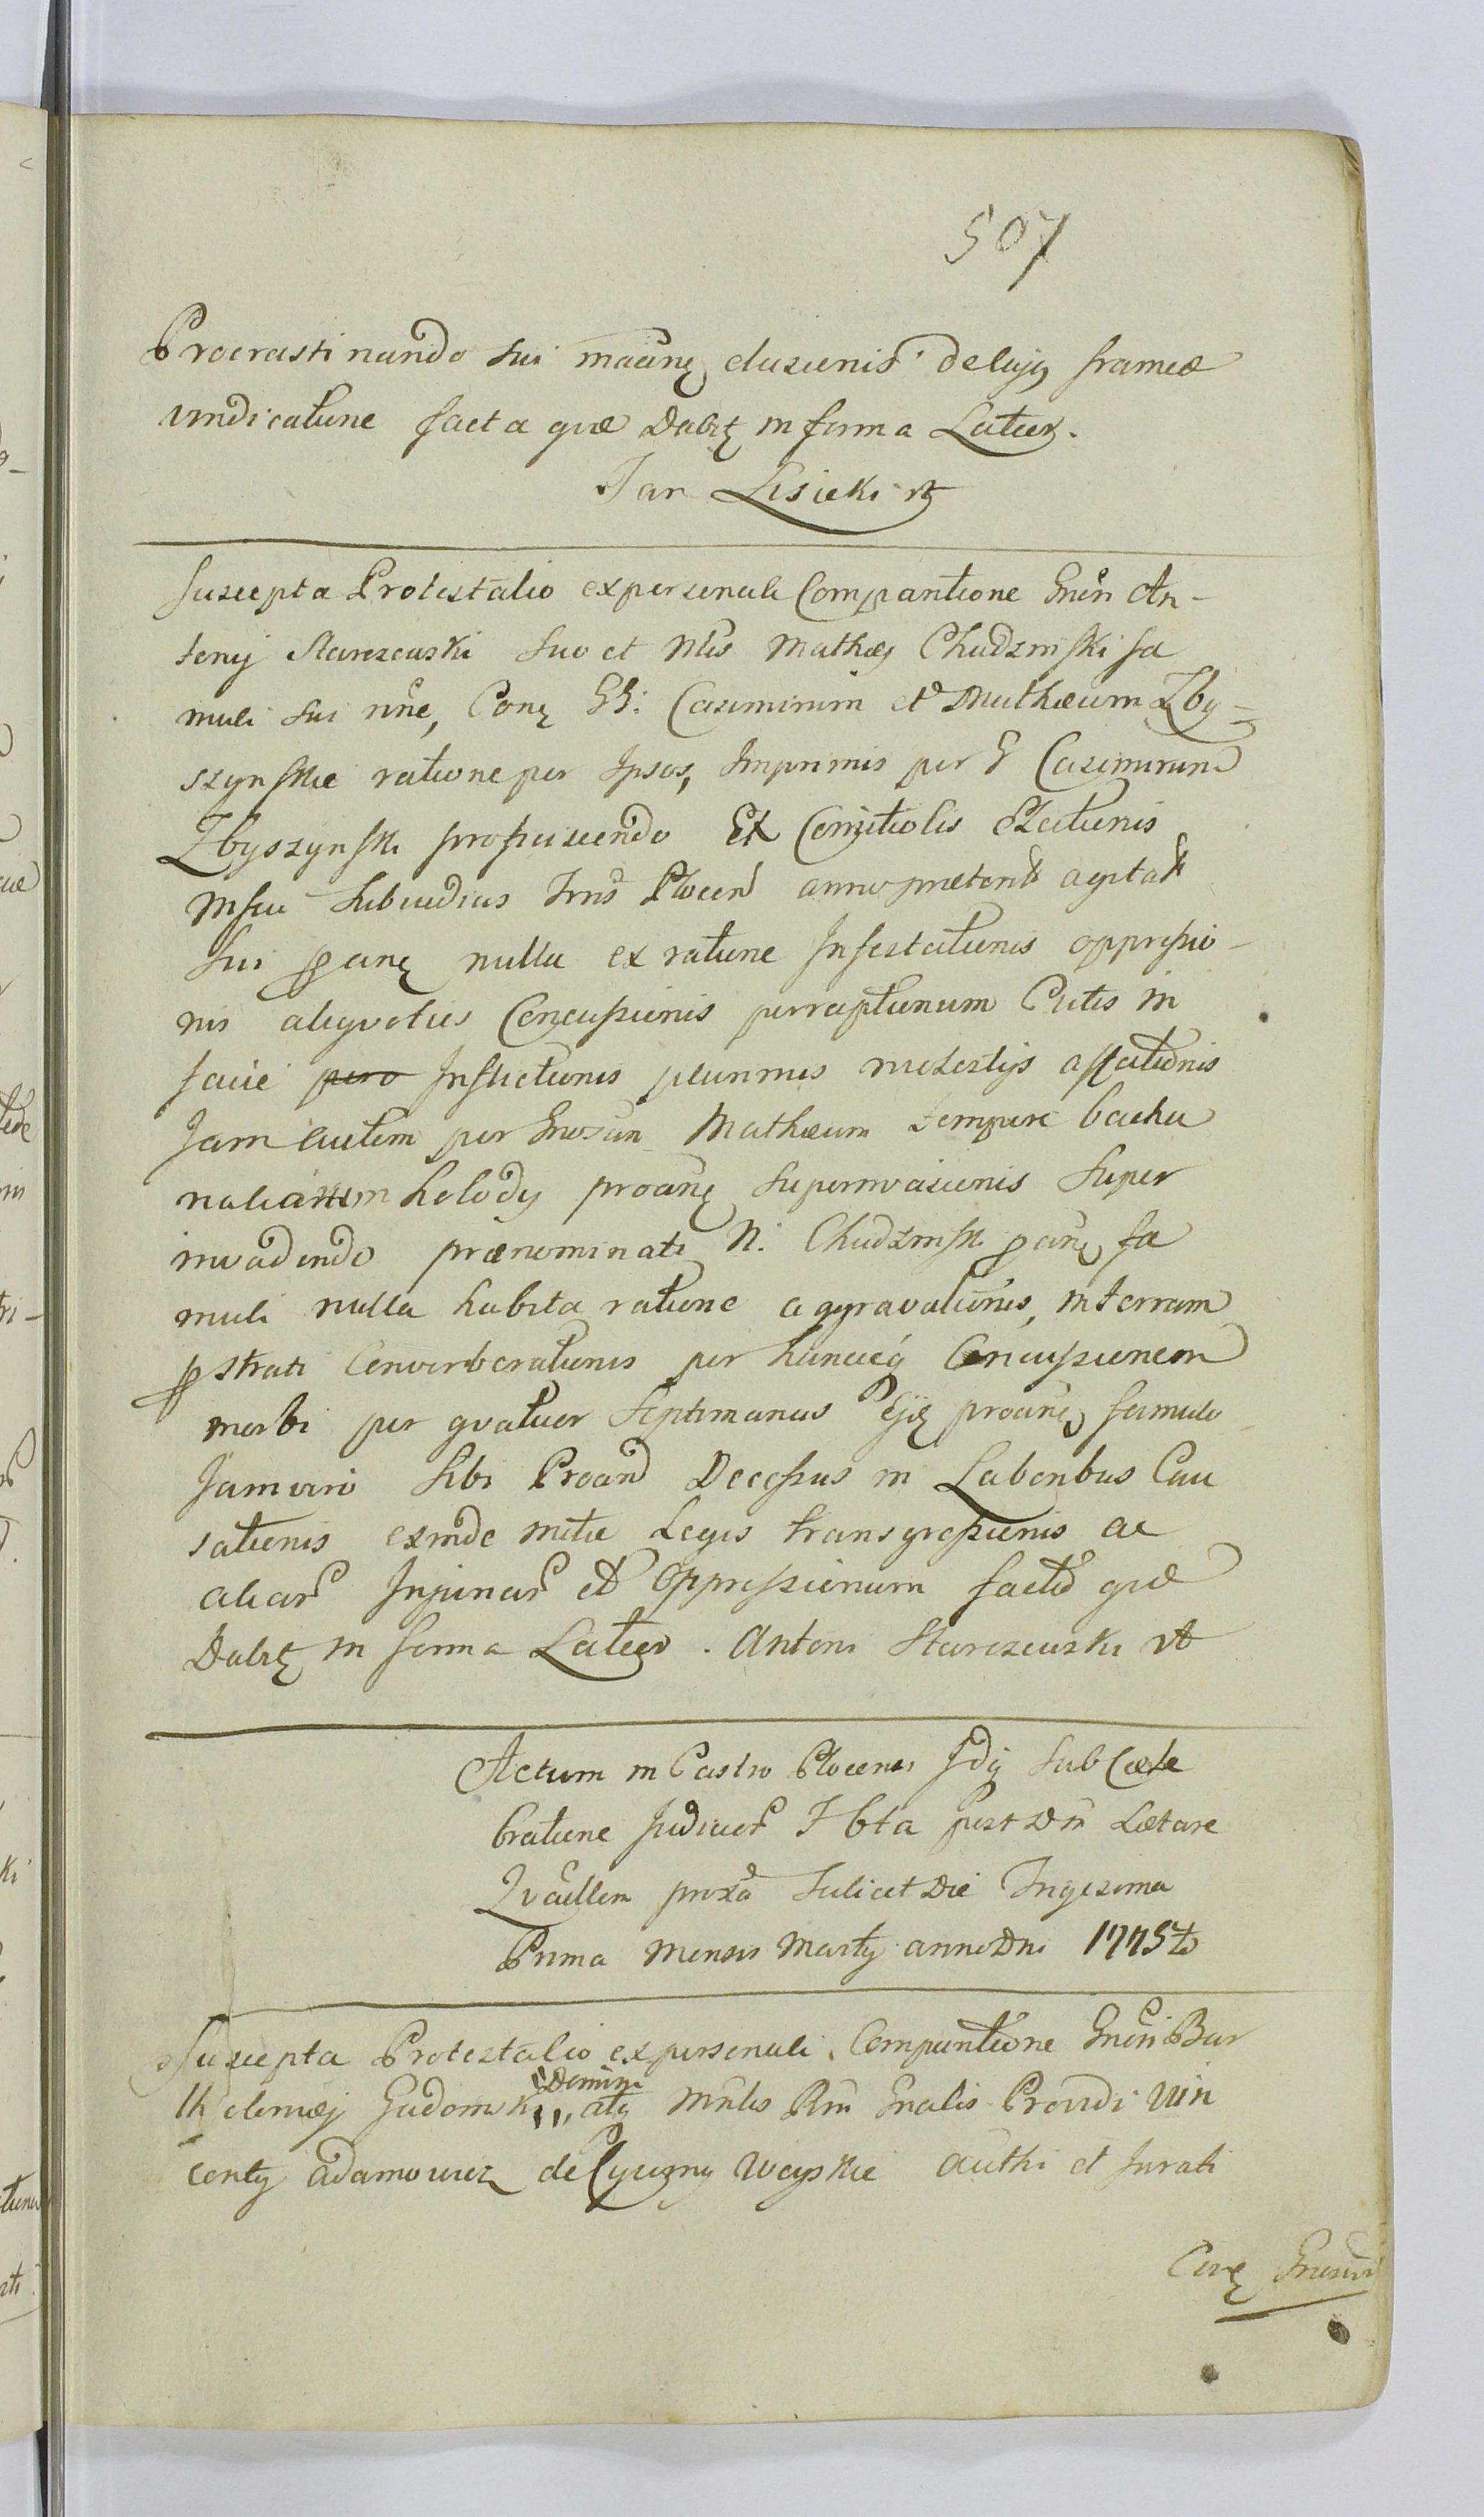 507
Procrastinando sui maanę elusionis de
vindicatione facta quæ Dabit in forma Latior.
Jan Lisicki
Suscepta Protestatio ex personali Comparitione Gnen An-
tonij Starczewski suo et Nlis Mathæj Chudzinski fa
muli sui nne, Conę GG: Casimirum et Mathæum Zby-
szynskie ratione per Ipsos, Imprimis per G Casimirum
Zbyszynski proficiscendo Ex Comitiolis Electionis
in Trris Plocen anno præterit
Sui panę nulla ex ratione Infestationis oppressio-
nis aliquoties Concussionis perraptionum in
facie Inflictionis plurimis molestijs
Jam autem per Gnosum Mathæum tempore bacha
naliarum proanę superinvasionis super
invadendo prænominati N. Chudzinsk panę fa
muli nulla habita ratione aggravationis, in terram
pstrati Converberationis per Concussionem
morbi per quatuor septimanas proanę famulo
Jam vero sibi Proand Decessus in Laboribus Cau
sationis exinde Legis transgressionis ac
aliar Injuriar et Oppressionum facta quæ
Dabit in forma Latior. Antoni Starczewski
Actum in Castro Plocensi sub Cæle
bratione Judicior post Dn Lætare
proxa scilicet Die Trigesima
Prima Mensis Martij anno Dni 1775to
Suscepta Protestatio ex personali Comparitione Gnen Bar
Domini
tholemæj Gadomski atq Mnlis Rni Gnalis Providi Vin
centij Adamowicz de authi et Jurati
Conę Gnosum